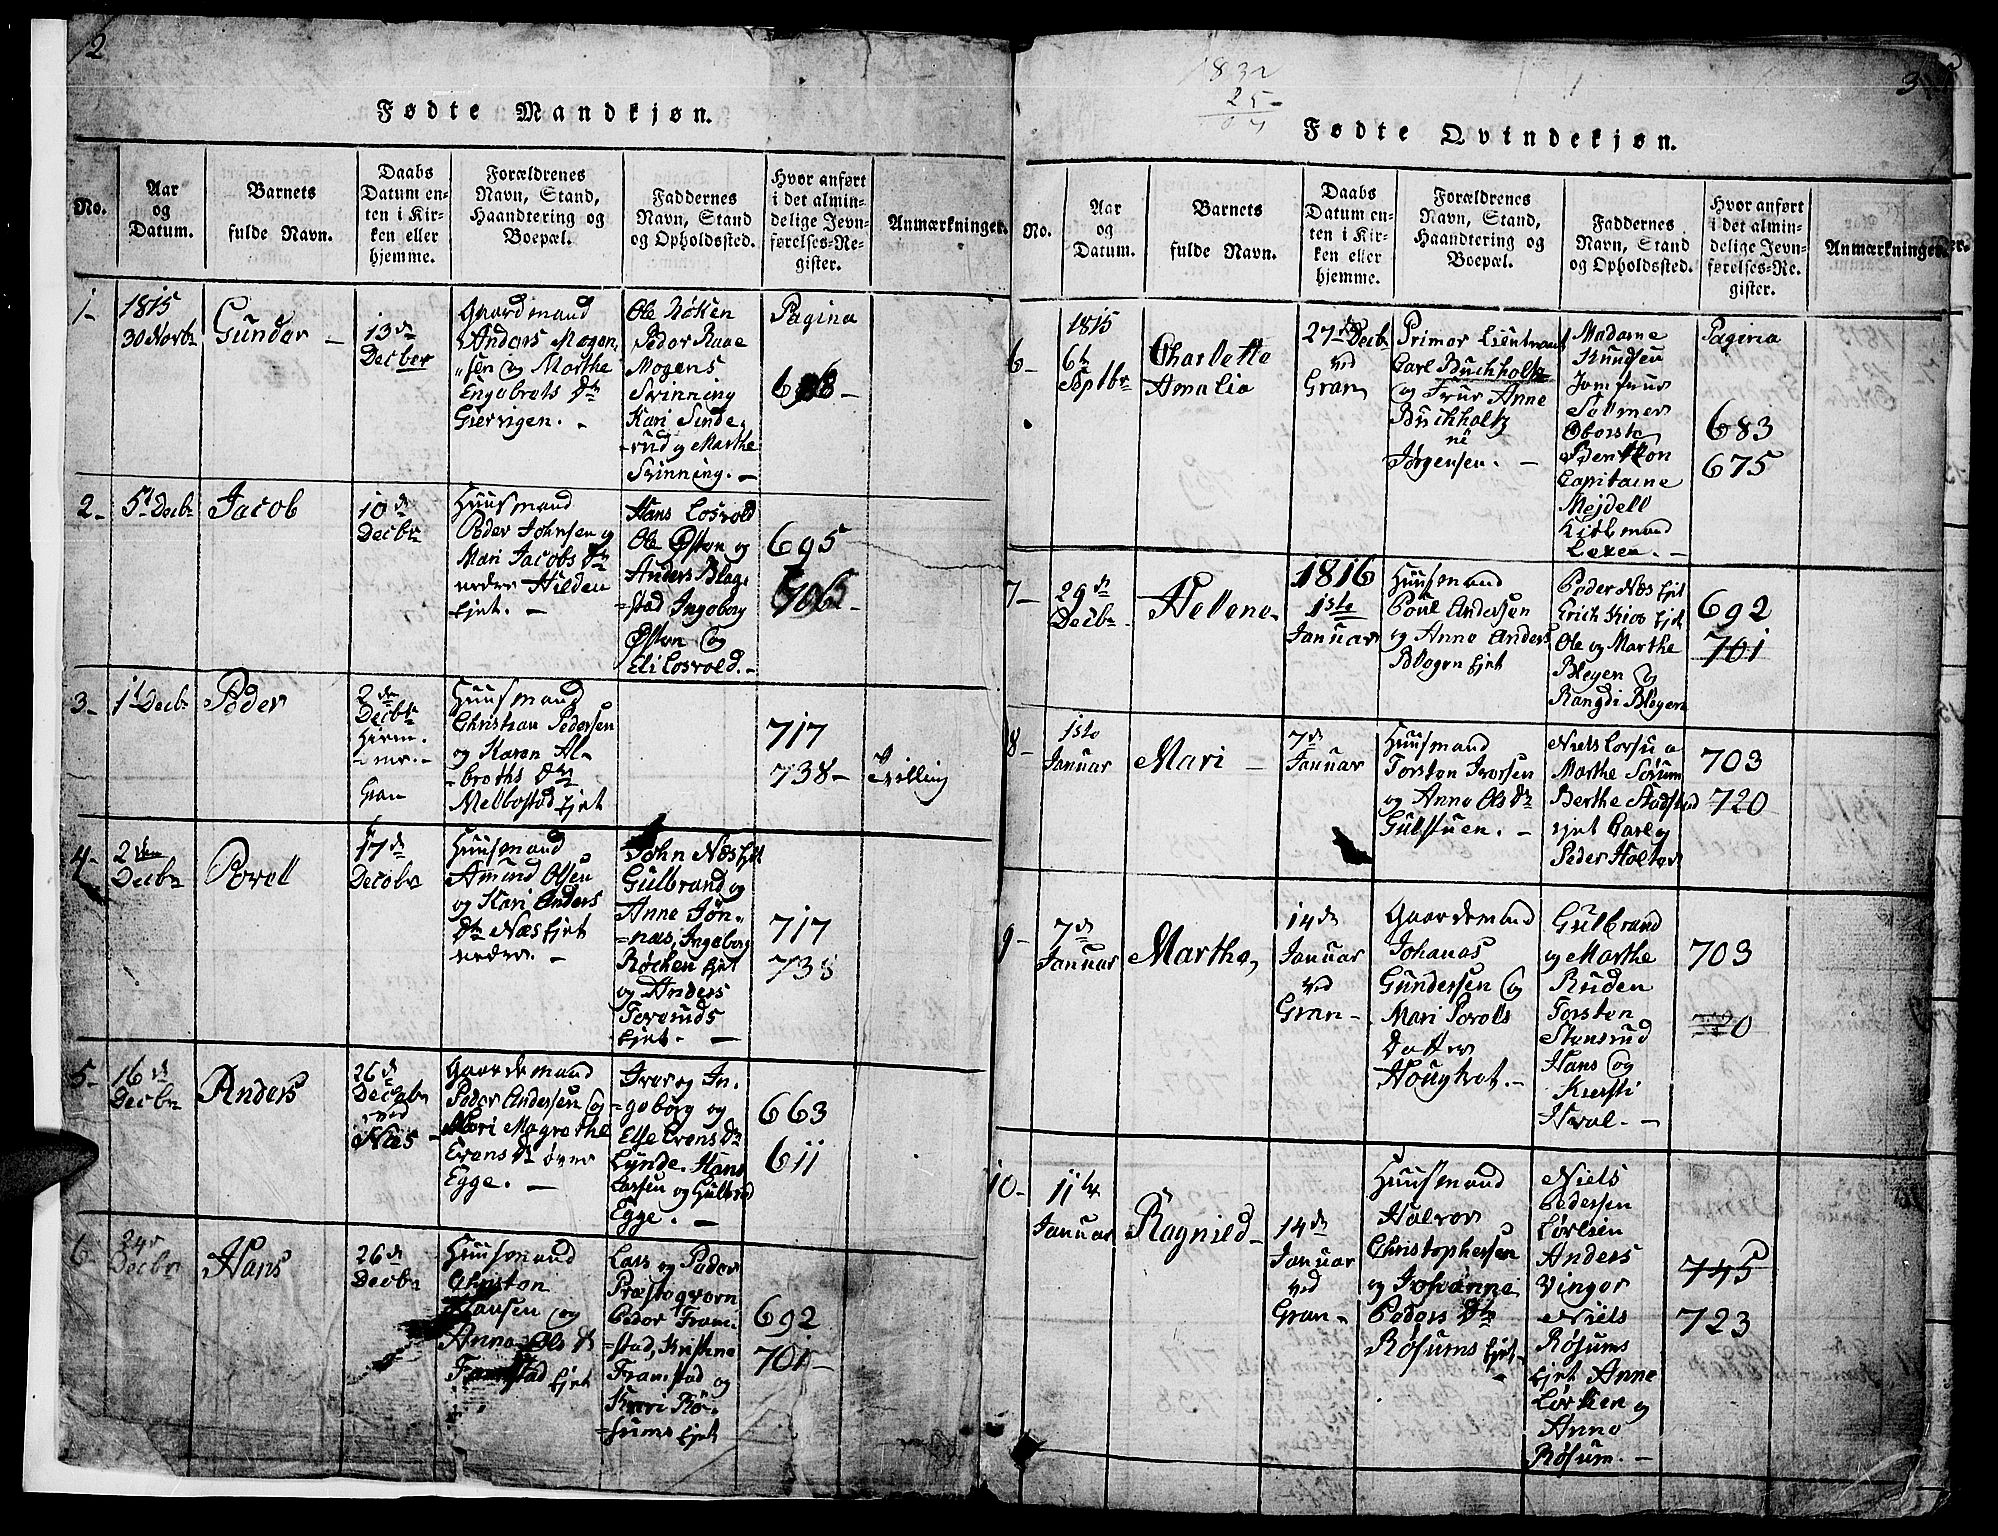 2
Fødte Mandkjøn.
No.
Aar
og
Datum.
Barnets
fulde Navn.
Daabs
Datum en-
ten i Kir-
ken eller
hjemme.
Forældrenes
Navn, Stand,
Haandtering og
Boepæl.
Faddernes
Navn, Stand
og Opholdssted.
Hvor anført
i det almin-
delige Jevn-
førelses-Re-
gister.
Anmærkninger.
1-
1815
30 Novbr
Gunder -
13de
Decber
Gaardmand
Anders Mogen
"sen og Marthe
Engebrets Dtr
Giervigen. -
Ole Røken
Peder Raae
Mogens
Svinning
Kari Sinde,
-rud og Marthe
Svinning. -
Pagina
2-
5t Decbr
Jacob
10de
Decbr
Huusmand
Peder Johnsen og
Mari Jacobs Dtr
nedre Hilden
Ejet. -
Hans Losvold
Ole Østen og
Anders Blag-
=stad Ingeborg
Østen og
Eli Losvold. -
695
706-
3-
1t Decbr
Peder
2de
Decbr
Hiem-
-me.-
Gran
Huusmand
Christian Pedersen
og Karen Al-
-broths Dtr
Melbostad Ejet
717
738-
Tvilling
4-
2den
Decbr
Povel
17de
Decbr
Huusmand
Amund Olsen
og Kari Anders
Dtr Næs Ejet
nedre. -
John Næs Ejet
Gulbrand og
Anne Jøn-
=næs, Ingeborg
Røcken Ejet
og Anders
Toveruds
Ejet. -
717
738
5-
16de
Decbr
Anders
26de
Decbr
ved
Næs -
Gaardemand
Peder Andersen og
Mari Magrethe
Evens Dtr øvre
Egge. -
Iver og In-
=geborg og
Else Evens Dtr
Lynde. Hans
Larsen og Gulbrd
Egge. -
663
611
6-
24de
Decbr
Hans
26de
Decbr
Huusmand
Christen
Hansen og
Anne Ols Dtr
Framstad Ejet
Lars og Peder
Præstegvorn
Peder Fram-
=stad, Kristine
Framstad og
Kari Rø-
=sums Ejet
692
701-
1832
25
3
Fødte Qvindekjøn.
No.
Aar
og
Datum.
Barnets
fulde Navn.
Daabs
Datum en-
ten i Kir-
ken eller
hjemme.
Forældrenes
Navn, Stand,
Haandtering og
Boepæl.
Faddernes
Navn, Stand
og Opholdssted.
Hvor anført
i det almin-
delige Jevn-
førelses-Re-
gister.
Anmærkninger.
6-
1815
6te
Septbr
Charlotte
Amalia
27de Decbr
ved
Gran
Primier Lieutnant
Carl Buchholtz
og Frue Anne
Buchholtz
né
Jørgensen. -
Madame
Knudsen
Jomfrue
Sollmer
Oberste
Capitaine
Mejdell
Kiøbmand
Lexen. -
Pagina
683
675
7-
29de
Decbr.
Hellene
1816
1ste
Januar
Huusmand
Poul Andersen
og Anne Anders
Blegen Ejet
Peder Næs Ejet
Erich Kios Ejet
Ole og Marthe
Blegen og
Rangdi Blegen
692
701
8-
1ste
Januar
Mari -
7de
Januar
Huusmand
Torsten Iversen
og Anne Ols Dtr
Gulstuen. -
Marthe Sørum
Berthe Stadstad
Ejet Carl og
Peder Holter
703
720
9-
7de
Januar
Marthe,
14de
Januar
ved
Gran-
Gaardemand
Johanas
Gundersen og
Mari Povels
Datter
Hougtvet. -
Gulbrand
og Marthe
Ruden
Torsten
Stensrud
Hans og
Kiersti
Hval. -
703
10-
11te
Januar
Ragnild-
14de
Januar
ved
Gran-
Huusmand
Halvor
Christophersen
og Johanne
Peders Dtr
Røsums Ejet-
Niels
Pedersen
Lørken
Anders
Vinger
Niels
Røsums
Ejet Anne
Lørken og
Anne
Røsum. -
745
723